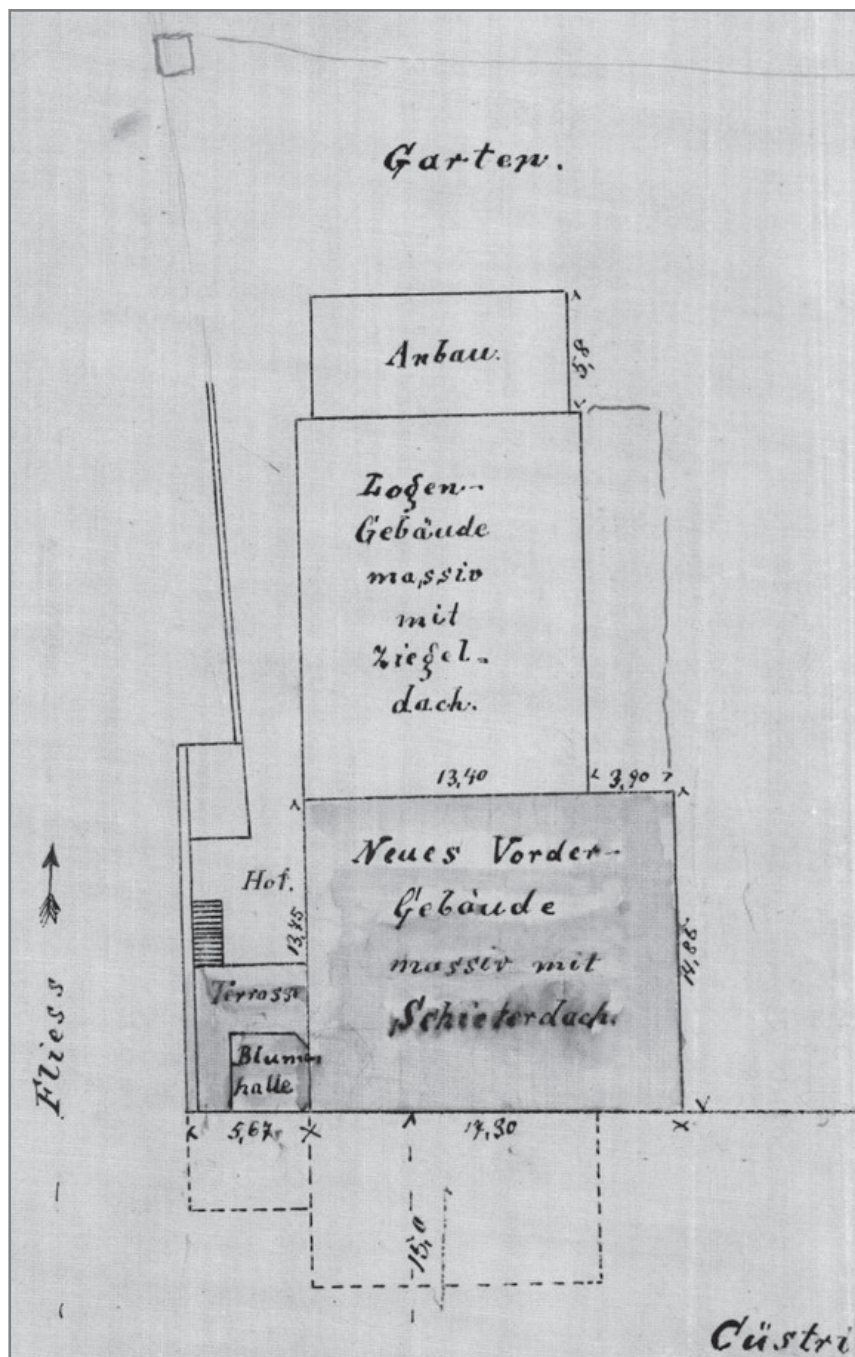 Garten.
Anbau.
5,8
Logen-
Gebäude
massiv
mit
Ziegel-
dach.
13,40
3,90
Neues Vorder-
Gebäude
massiv mit
Schieferdach.
Hof.
13,45
14,88
Terrasse
Blumen
halle
Fliess
5,67
17,30
15,0
Cüstri